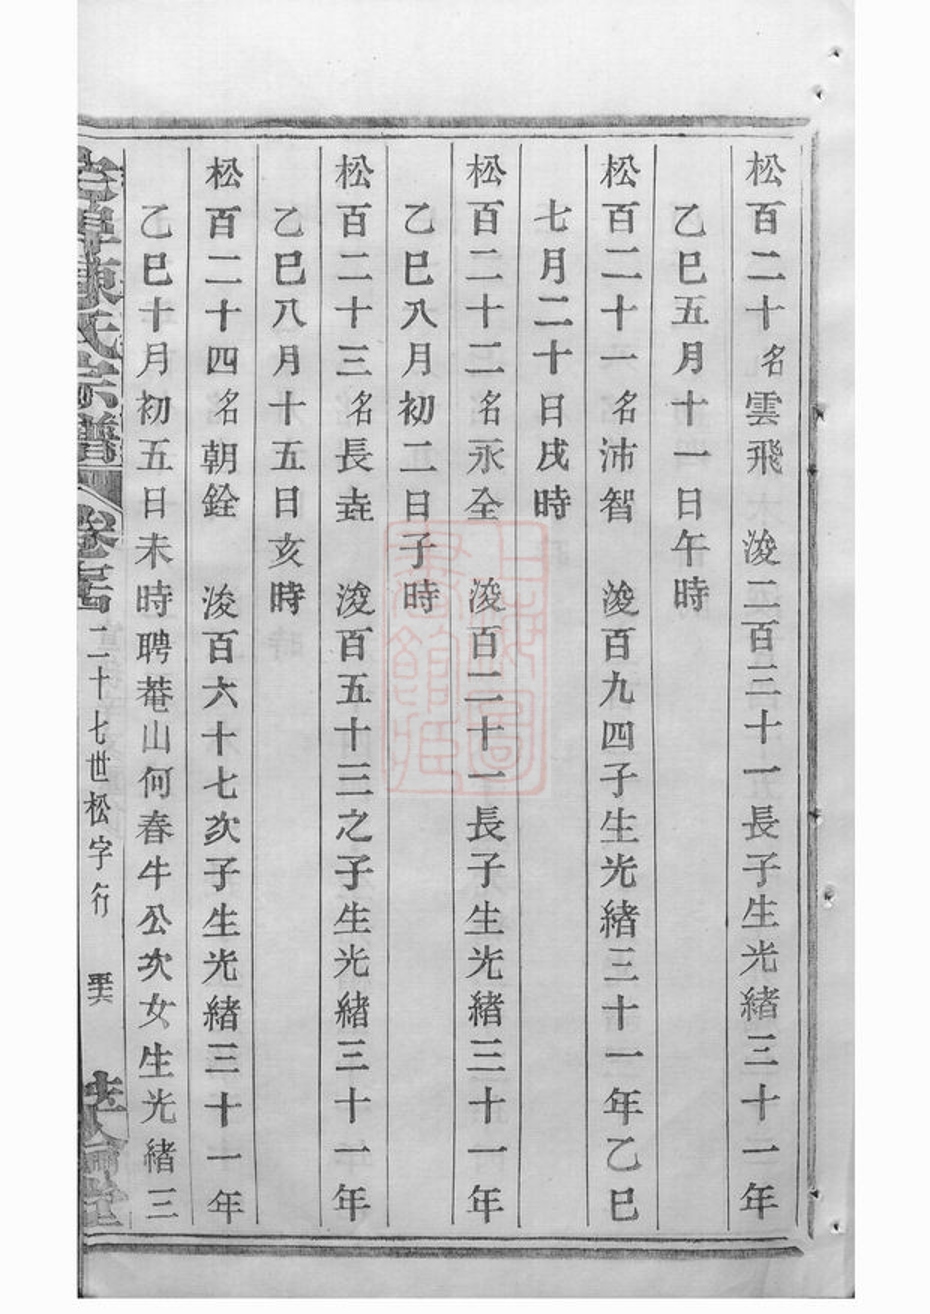 松百二十名雲飛　浚二百三十一長子生光緒三十一年
乙巳五月十一日午時
松百二十一名沛智　浚百九四子生光緒三十一年乙巳
七月二十日戌時
松百二十二名永全　浚百二十一長子生光緒三十一年
乙巳八月初二日子時
松百二十三名長垚　浚百五十三之子生光緒三十一年
乙巳八月十五日亥時
松百二十四名朝銓　浚百六十七次子生光緒三十一年
乙巳十月初五日未時聘菴山何春牛公次女生光緒三
陳氏宗譜　二十七世松字行
上海圖書館藏